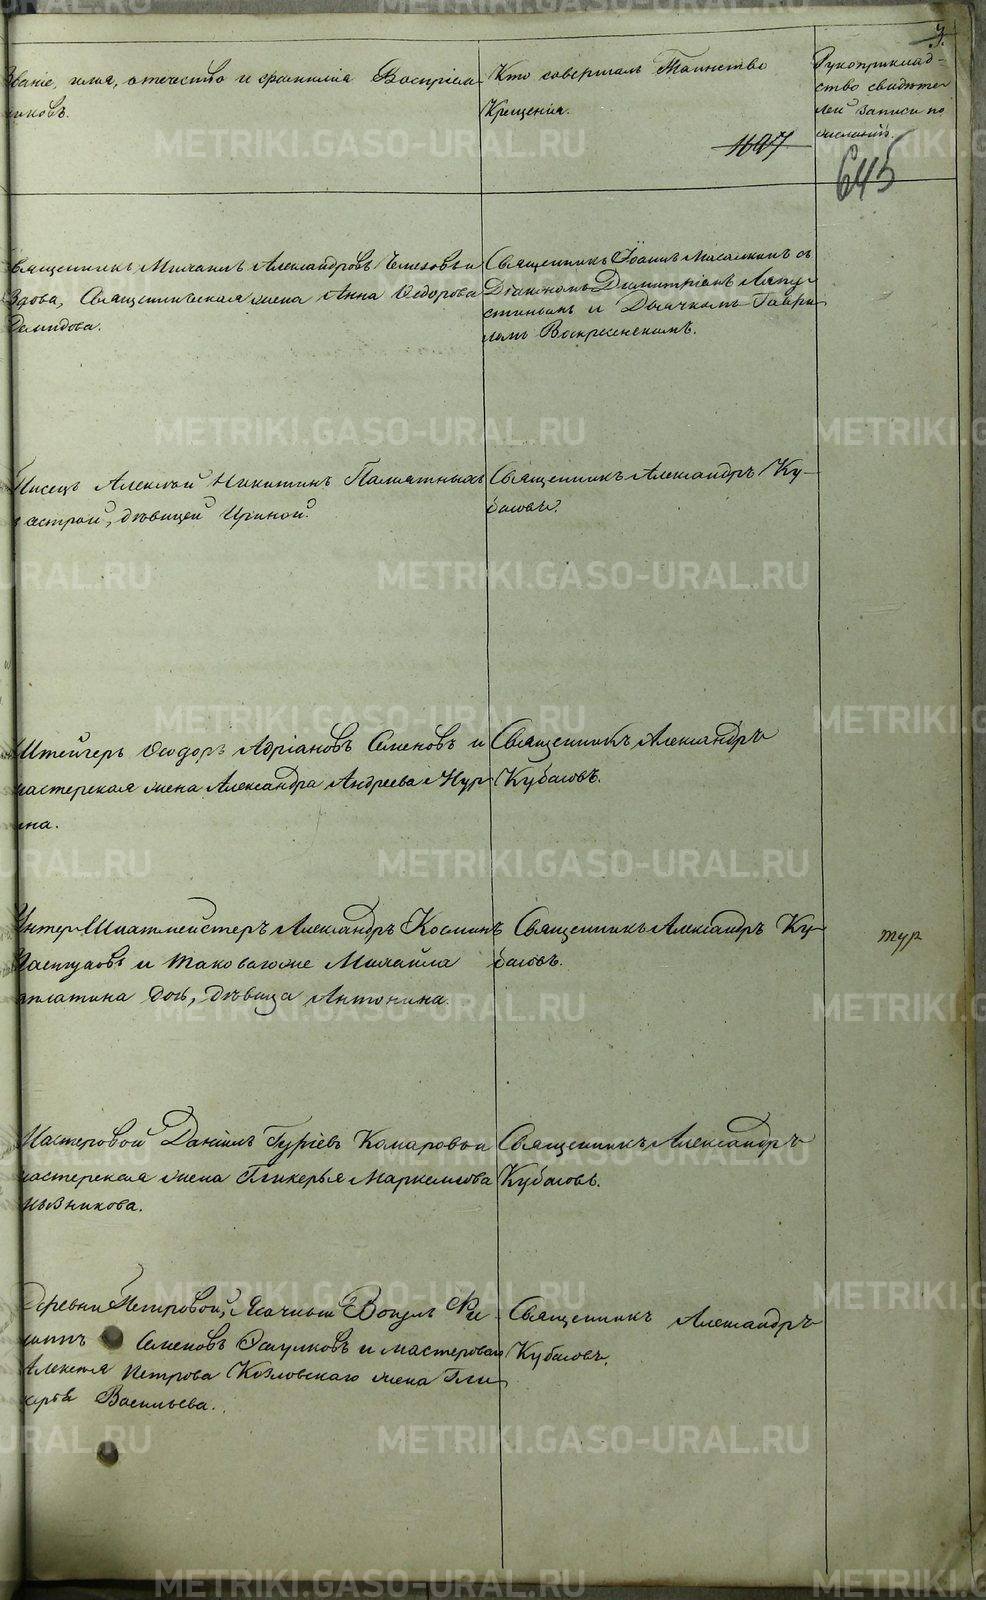 3.
Званіе, имя, отечество и фамилія Воспріем-
никовъ.
Кто совершалъ Таинство
Крещенія.
Рукоприклад-
ство свидѣте
лей записи по
желанію.
1097
645
Священникъ Михаилъ Александровъ и
Вдова, Священническая жена Анна Ѳедорова
Демидова.
Священникъ Іоаннъ съ
Діакономъ Димитріемъ
и Дьячкомъ Гаври
ломъ Воскресенскимъ.
Писецъ Алексѣй Никитинъ Памятныхъ
съ сестрой, дѣвицей Ириной.
Священникъ Александръ Ку-
басовъ.
Штейгеръ Ѳеодоръ Адріановъ Семеновъ и
мастерская жена Александра Андреева
ина.
Священникъ Александръ
Кубасовъ.
Унтер-Шихтмейстеръ Александръ Косминъ
и таковагоже Михаила
дочь, дѣвица Антонина.
Священникъ Александръ Ку-
басовъ.
тур
Мастеровой Даніилъ Гуріевъ Комаровъ и
мастерская жена Гликерья Маркелова
Священникъ Александръ
Кубасовъ.
Деревни Петровой, Ясачный Вогулъ Фи-
липпъ Семеновъ и мастероваго
Алексѣя Петрова Козловскаго жена Гли
керія Васильева.
Священникъ Александръ
Кубасовъ.
METRIKI.GASO-URAL.RU